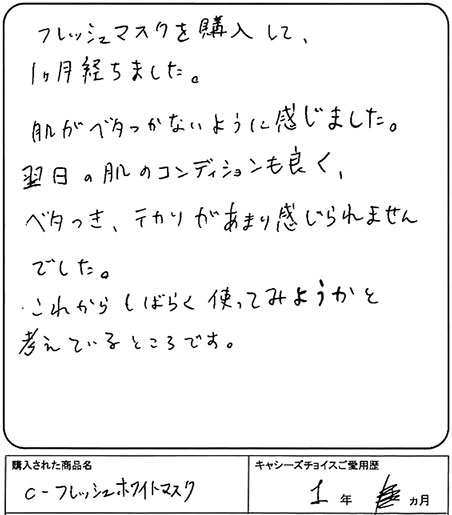 フレッシュマスクを購入して、
1ヶ月経ちました。
肌がベタつかないように感じました。
翌日の肌のコンディションも良く、
ベタつき、テカリがあまり感じられません
でした。
これからしばらく使ってみようかと
考えているところです。
購入された商品名
キャシーズチョイスご愛用歴
C-フレッシュホワイトマスク
1年 ヵ月